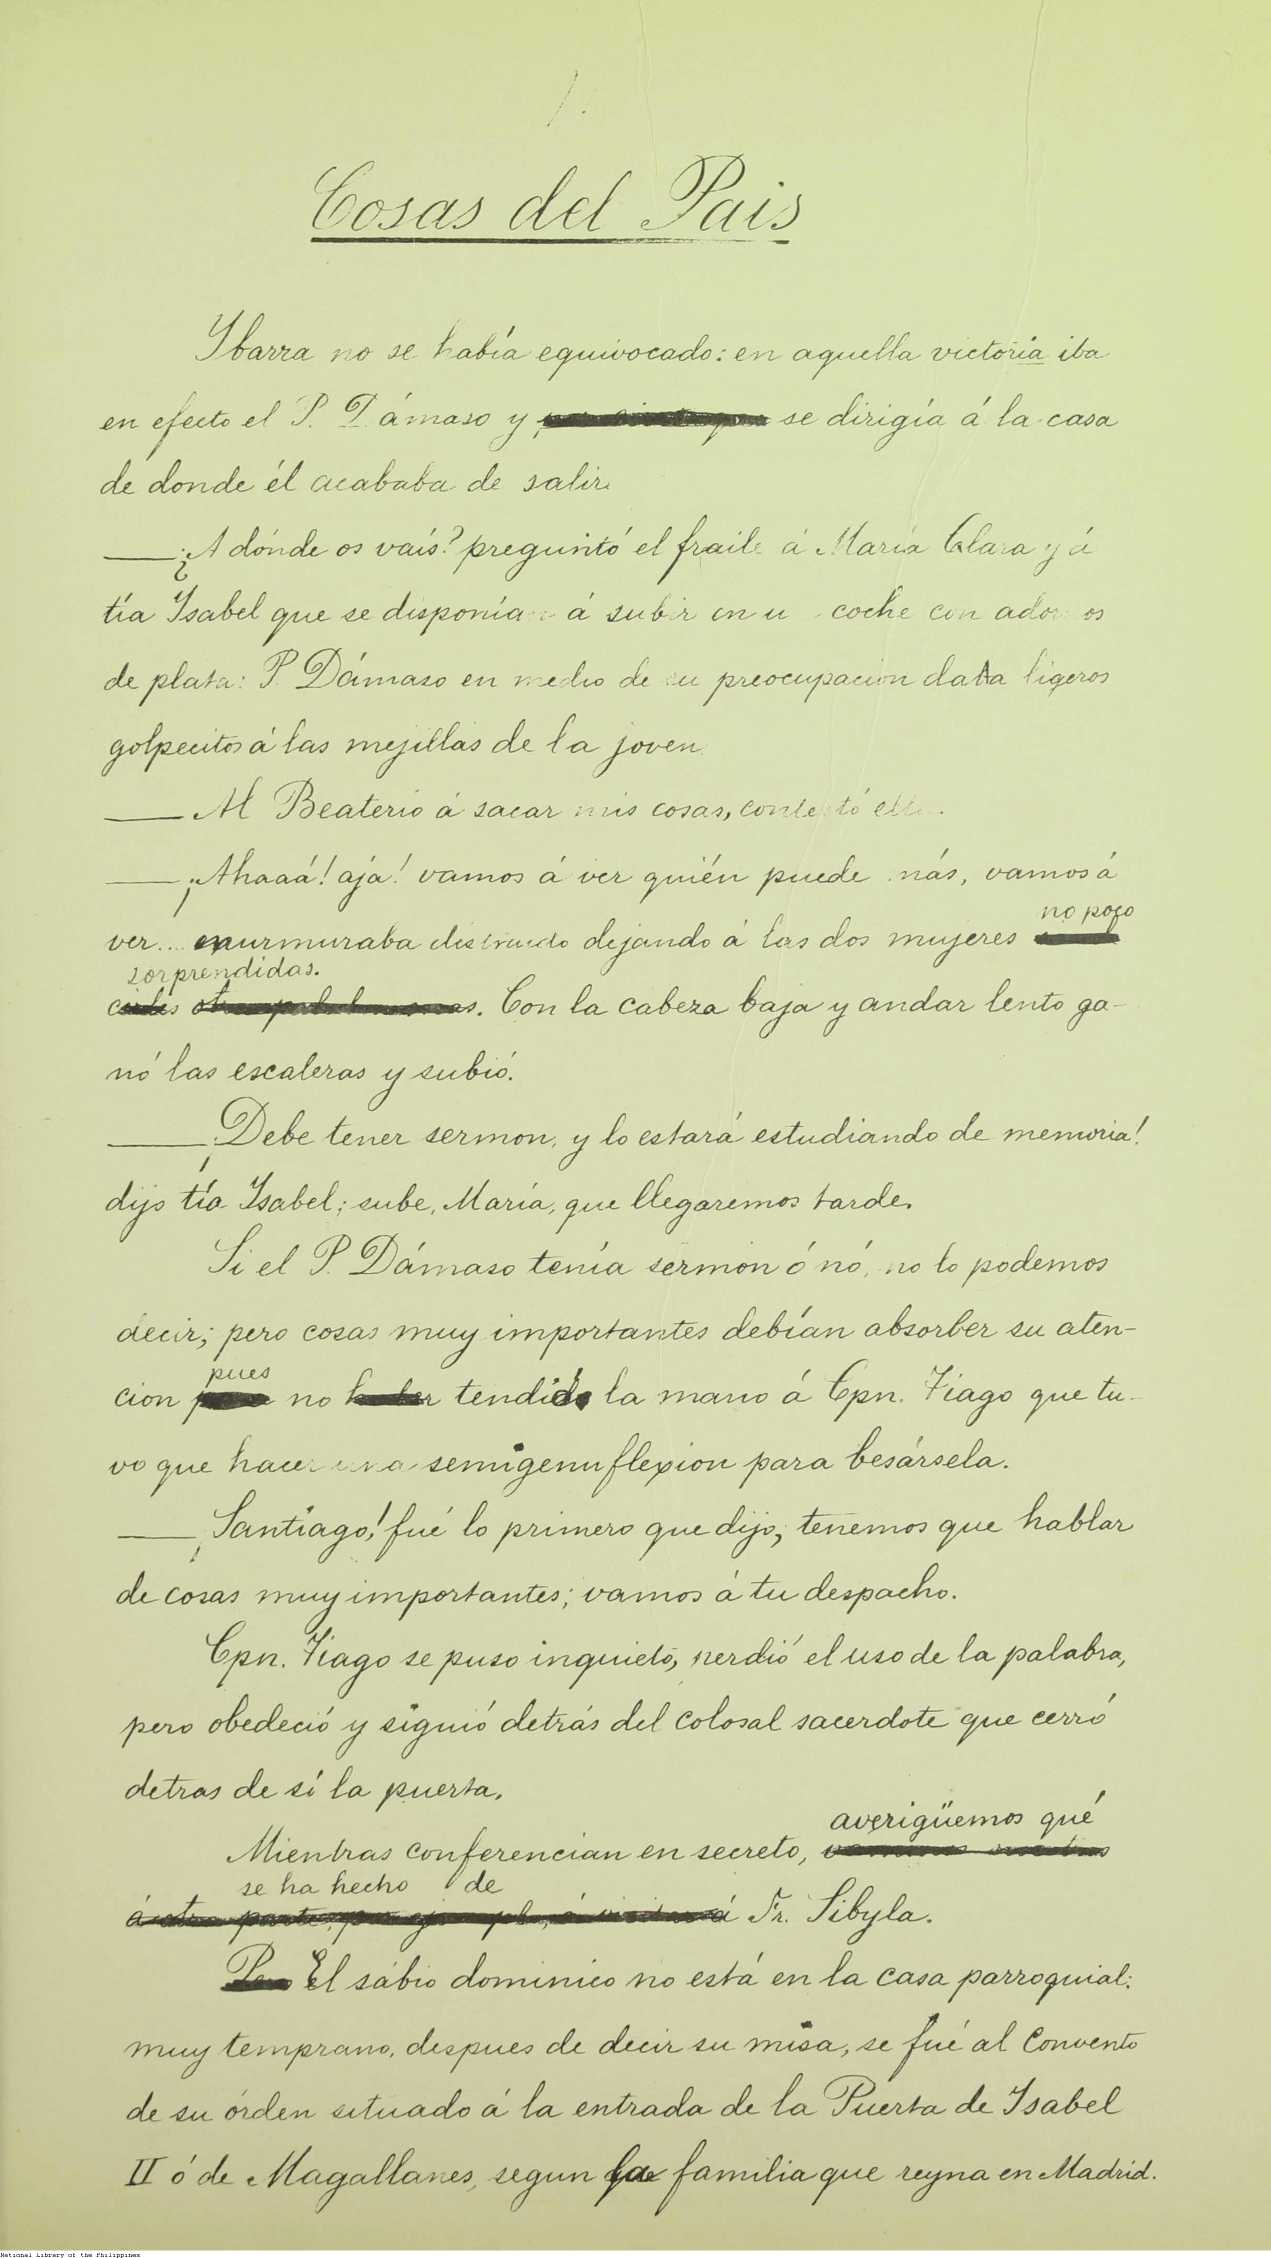 1.
Cosas del Pais
Ybarra no se había equivocado: en aquella victoria iba
en efecto el P. Dámaso y se dirigía á la casa
de donde él acababa de salir.
—¿A dónde os vaís? preguntó el fraile á María Clara y á
tía Isabel que se disponían á subir en u coche con adornos
de plata: P. Dámaso en medio de su preocupacion daba ligeros
golpecitos á las mejillas de la joven.
—Al Beaterio á sacar mis cosas, contestó ella.
—¡Ahaaá! ajá! vamos á ver quién puede más, vamos á
no poco
ver... murmuraba distraido dejando á las dos mujeres
sorprendidas.
Con la cabeza baja y andar lento ga-
nó las escaleras y subió.
—¡Debe tener sermon, y lo estará estudiando de memoria!
dijo tía Isabel; sube, María, que llegaremos tarde.
Si el P. Dámaso tenía sermon ó nó, no lo podemos
decir; pero cosas muy importantes debían absorber su aten-
pues
cion no haber tendido la mano á Cpn. Tiago que tu-
vo que hacer una semigenuflexion para besársela.
—¡Santiago! fué lo primero que dijo, tenemos que hablar
de cosas muy importantes; vamos á tu despacho.
Cpn. Tiago se puso inquieto, perdió el uso de la palabra,
pero obedeció y siguió detrás del colosal sacerdote que cerró
detras de sí la puerta.
averigüemos qué
Mientras conferencian en secreto,
se ha hecho de
á otra parte, por ejemplo, á visitar á Fr. Sibyla.
Pero El sábio dominico no está en la casa parroquial:
muy temprano, despues de decir su misa, se fué al Convento
de su órden situado á la entrada de la Puerta de Isabel
II ó de Magallanes, segun la familia que reyna en Madrid.
National Library of the Philippines